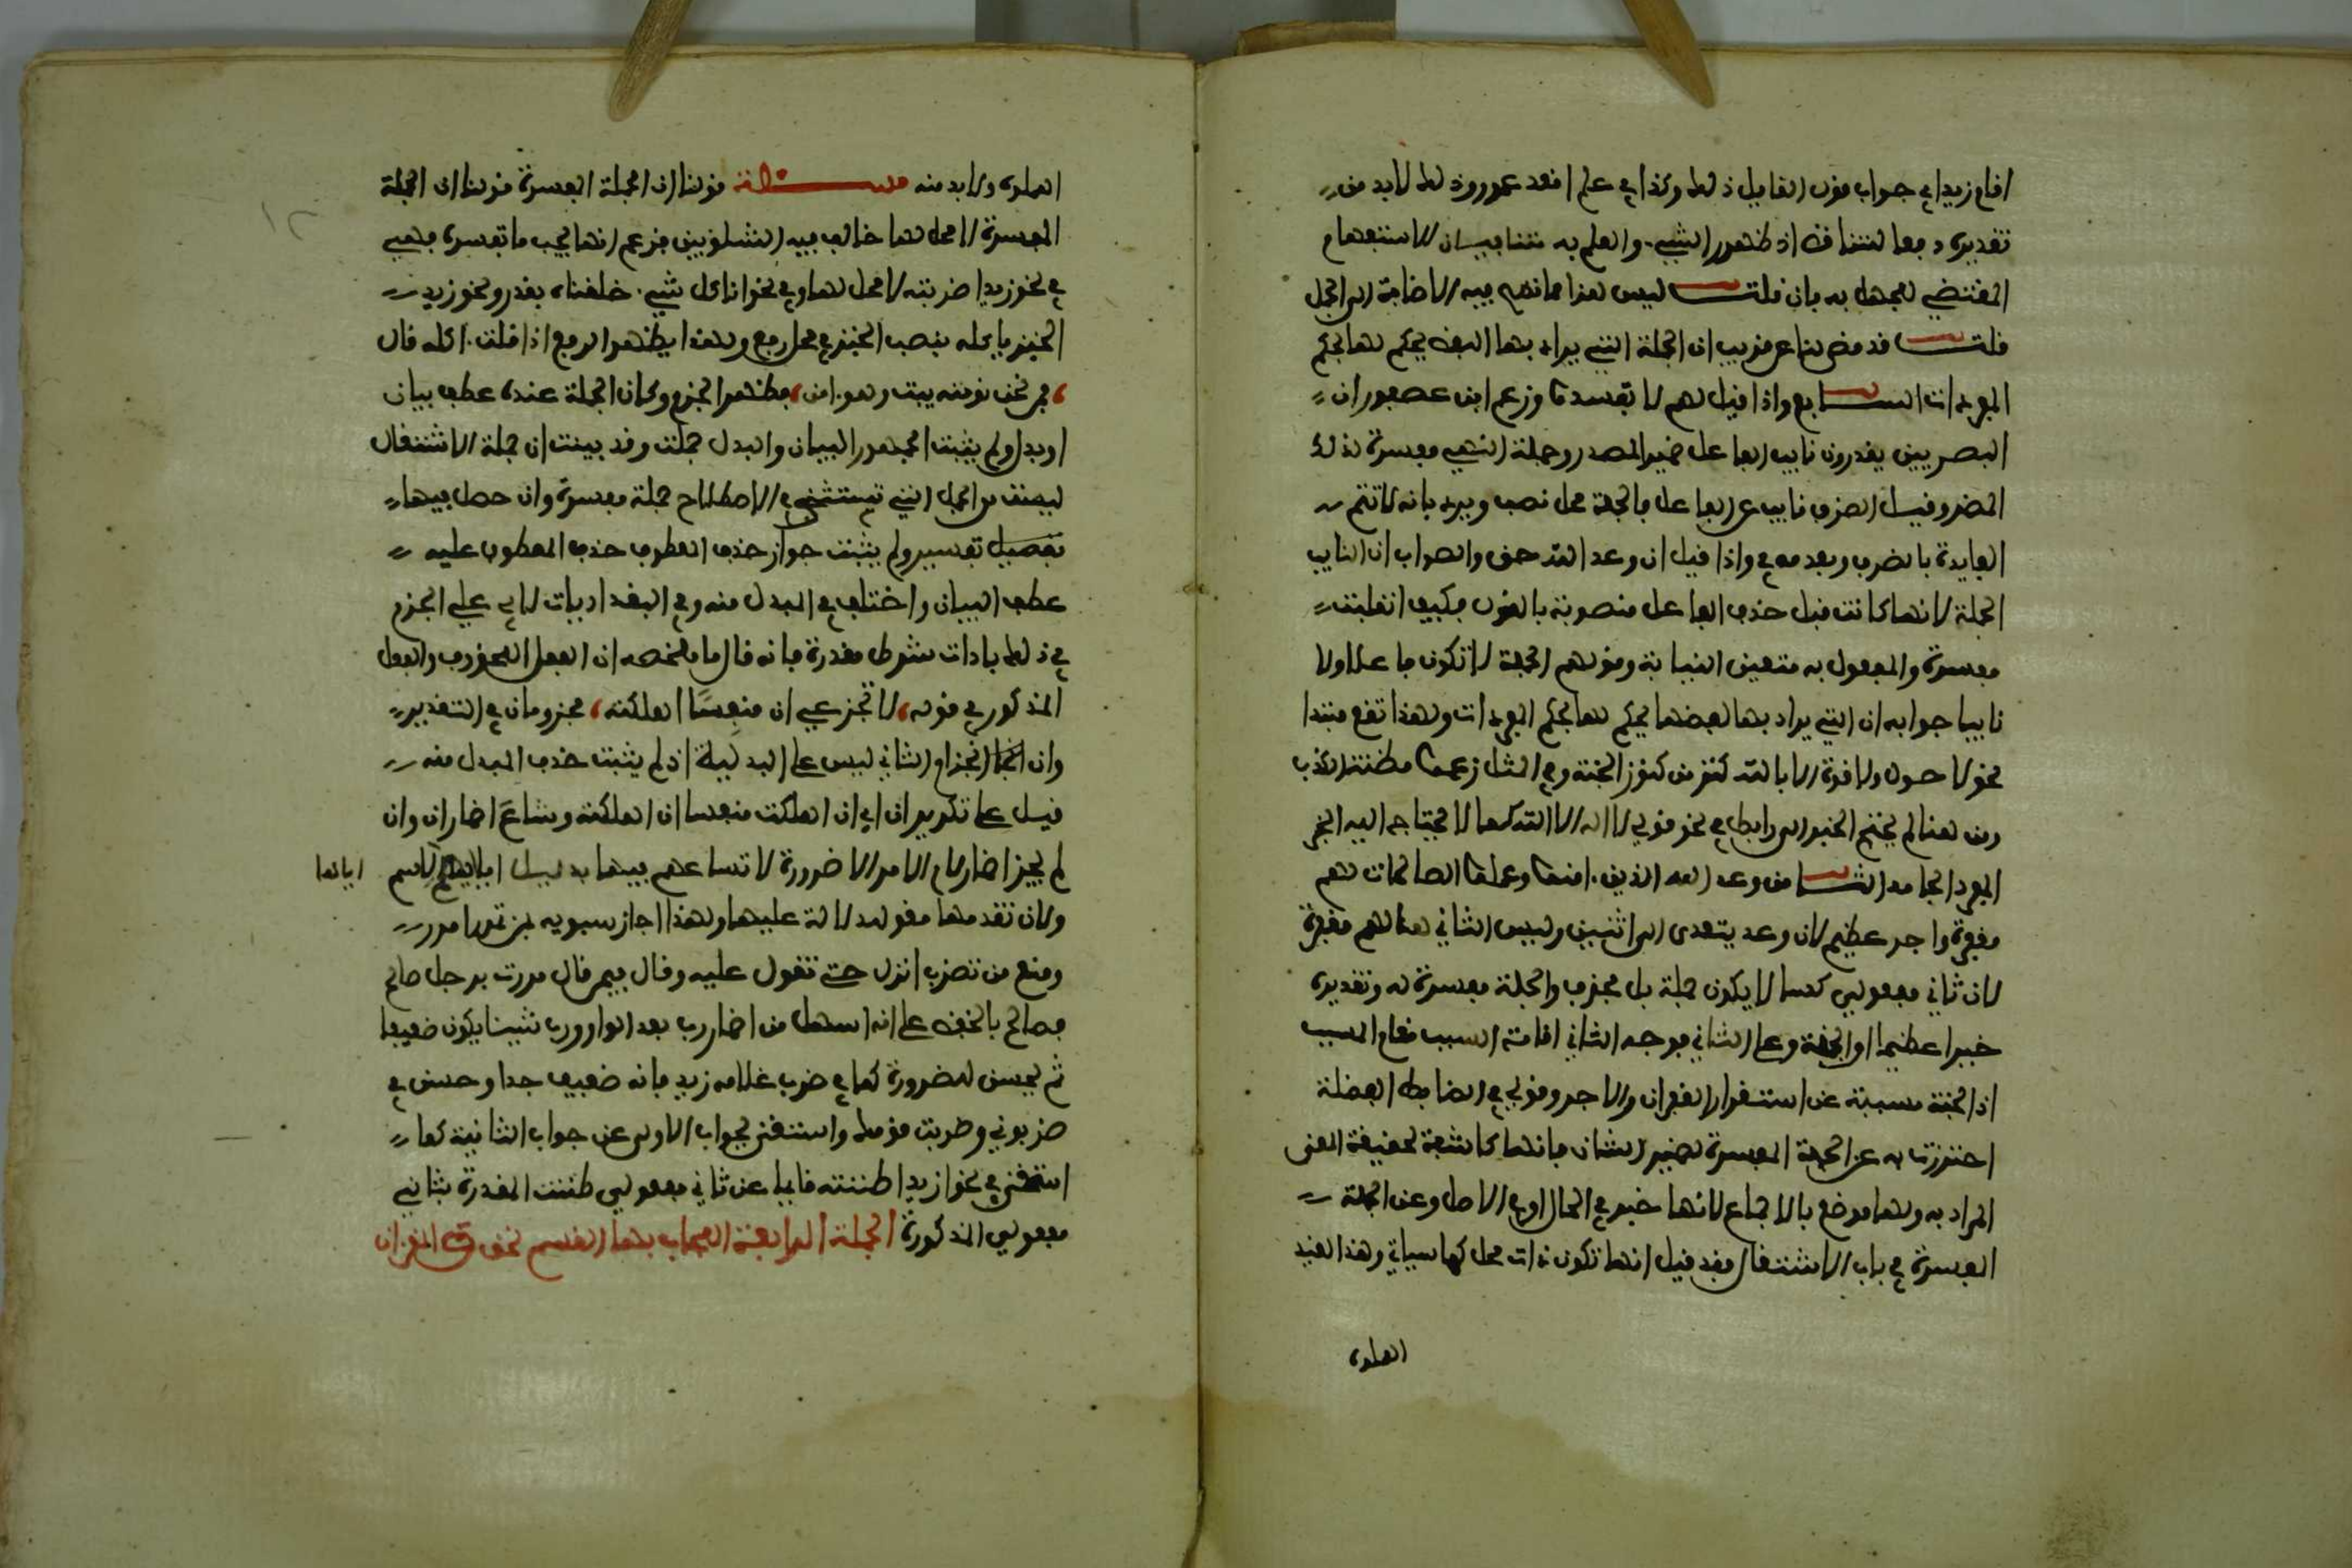 اقام زيد اي جواب قول القايل ذلك وكذا في علم اقعد عمرو وذلك لا بد من
تقديره دفعا للتنافى اذ ظهور الشيء والعلم به متنافيان الاستفهام
المقتضي للجهل به فان قلت ليس هذا مما تصح فيه الاضافة الى الجمل
قلت قد مضى لنا عن قريب ان الجملة التي يراد بها اللفظ يحكم لها بحكم
المفردات السابع واذا قيل لهم لا تفسدوا زعم ابن عصفور ان
البصريين يقدرون نايب الفاعل ضمير المصدر وجملة النهي مفسرة لذلك
المضمر وقيل الظرف نايب عن الفاعل فالجملة محل نصب ويرد بانه لا تتم
الفايدة بالظرف وبعدمه في واذا قيل ان وعد الله حق والصواب ان النايب
الجملة لانها كانت قبل حذف الفاعل منصوبة بالقول فكيف انقلبت
مفسرة والمفعول به متعين النيابة وقولهم الجملة لا تكون فاعلا ولا
نايبا جوابه ان التي يراد بها لفظها يحكم لها بحكم المفردات ولهذا تقع مبتدا
نحو لا حول ولا قوة الا بالله كنز من كنوز الجنة وفي المثل زعموا مطية الكذب
ومن هنا لم يحتج الخبر الى رابط في نحو قولي لا اله الا الله كما لا يحتاج اليه الخبر
المفرد الجامد الثامن وعد الله الذين امنوا وعملوا الصالحات لهم
مغفرة واجر عظيم لان وعد يتعدى الى اثنين وليس الثاني هنا لهم مغفرة
لان ثاني مفعولي كسا لا يكون جملة بل محذوف والجملة مفسرة له وتقديره
خيرا عظيما او الجنة وعلى الثاني فوجه الثاني اقامة السبب مقام المسبب
اذ الجنة مسببة عن استقرار الغفران والاجر وقولي في الضابط الفضلة
احترزت به عن الجملة المفسرة لضمير الشان فانها كاشفة لحقيقة المعنى
المراد به ولها موضع بالاجماع لانها خبر في الحال او في الاصل وعن الجملة
المفسرة في باب الاشتغال فقد قيل انها تكون ذات محل كما سياتي وهذا القيد
اهملوه
اهملوه ولا بد منه مسئلة قولنا ان الجملة المفسرة قولنا ان الجملة
المفسرة لا محل لها خالف فيه الشلوبين فزعم انها بحسب ما تفسره فهي
في نحو زيدا ضربته لا محل لها وفي نحو انا كل شيء خلقناه بقدر ونحو زيد
الخبز ياكله بنصب الخبز في محل رفع ولهذا يظهر الرفع اذا قلت اكله قال
فمن نحن نومنه يبت وهو امن فظهر الجزم وكان الجملة عنده عطف بيان
او بدل ولم يثبت الجمهور البيان والبدل جملة وقد بينت ان جملة الاشتغال
ليست من الجمل التي تسمى في الاصطلاح جملة مفسرة وان حصل فيها
تفصيل تفسير ولم يثبت جواز حذف المعطوف حذف المعطوف عليه
عطف البيان واختلف في المبدل منه وفي البغداديات لابي علي الجزم
في ذلك باداة شرط مقدرة فانه قال ما ملخصه ان الفعل المحذوف والفعل
المذكور في قوله لا تجزعي ان منفسا اهلكته مجزومان في التقدير
وان انجزام الثاني ليس على البدلية اذ لم يثبت حذف المبدل منه
قيل على تكرير ان اي ان اهلكت منفسا ان اهلكته وشاع اضمار ان وان
لم يجز اضمار لام الامر الا ضرورة لاتساعهم فيها بدليل ايلايهم الاسم ايلاها
ولان تقدمها مقو للدلالة عليها ولهذا اجاز سيبويه بمن تمرر امرر
ومنع من تضرب انزل حتى تقول عليه وقال فيمن قال مررت برجل صالح
فصالح بالخفض على انه اسهل من اضمار رب بعد الواو ورب شيئا يكون ضعيفا
ثم يحسن للضرورة كما في ضرب غلامه زيد فانه ضعيف جدا وحسن في
ضربوني وضربت قومك واستغنى بجواب الاولى عن جواب الثانية كما
استغنى في نحو ازيدا ظننته قايما عن ثاني مفعولي ظننت المقدرة بثاني
مفعولي المذكورة الجملة الرابعة المجاب بها القسم نحو والقران
١٢